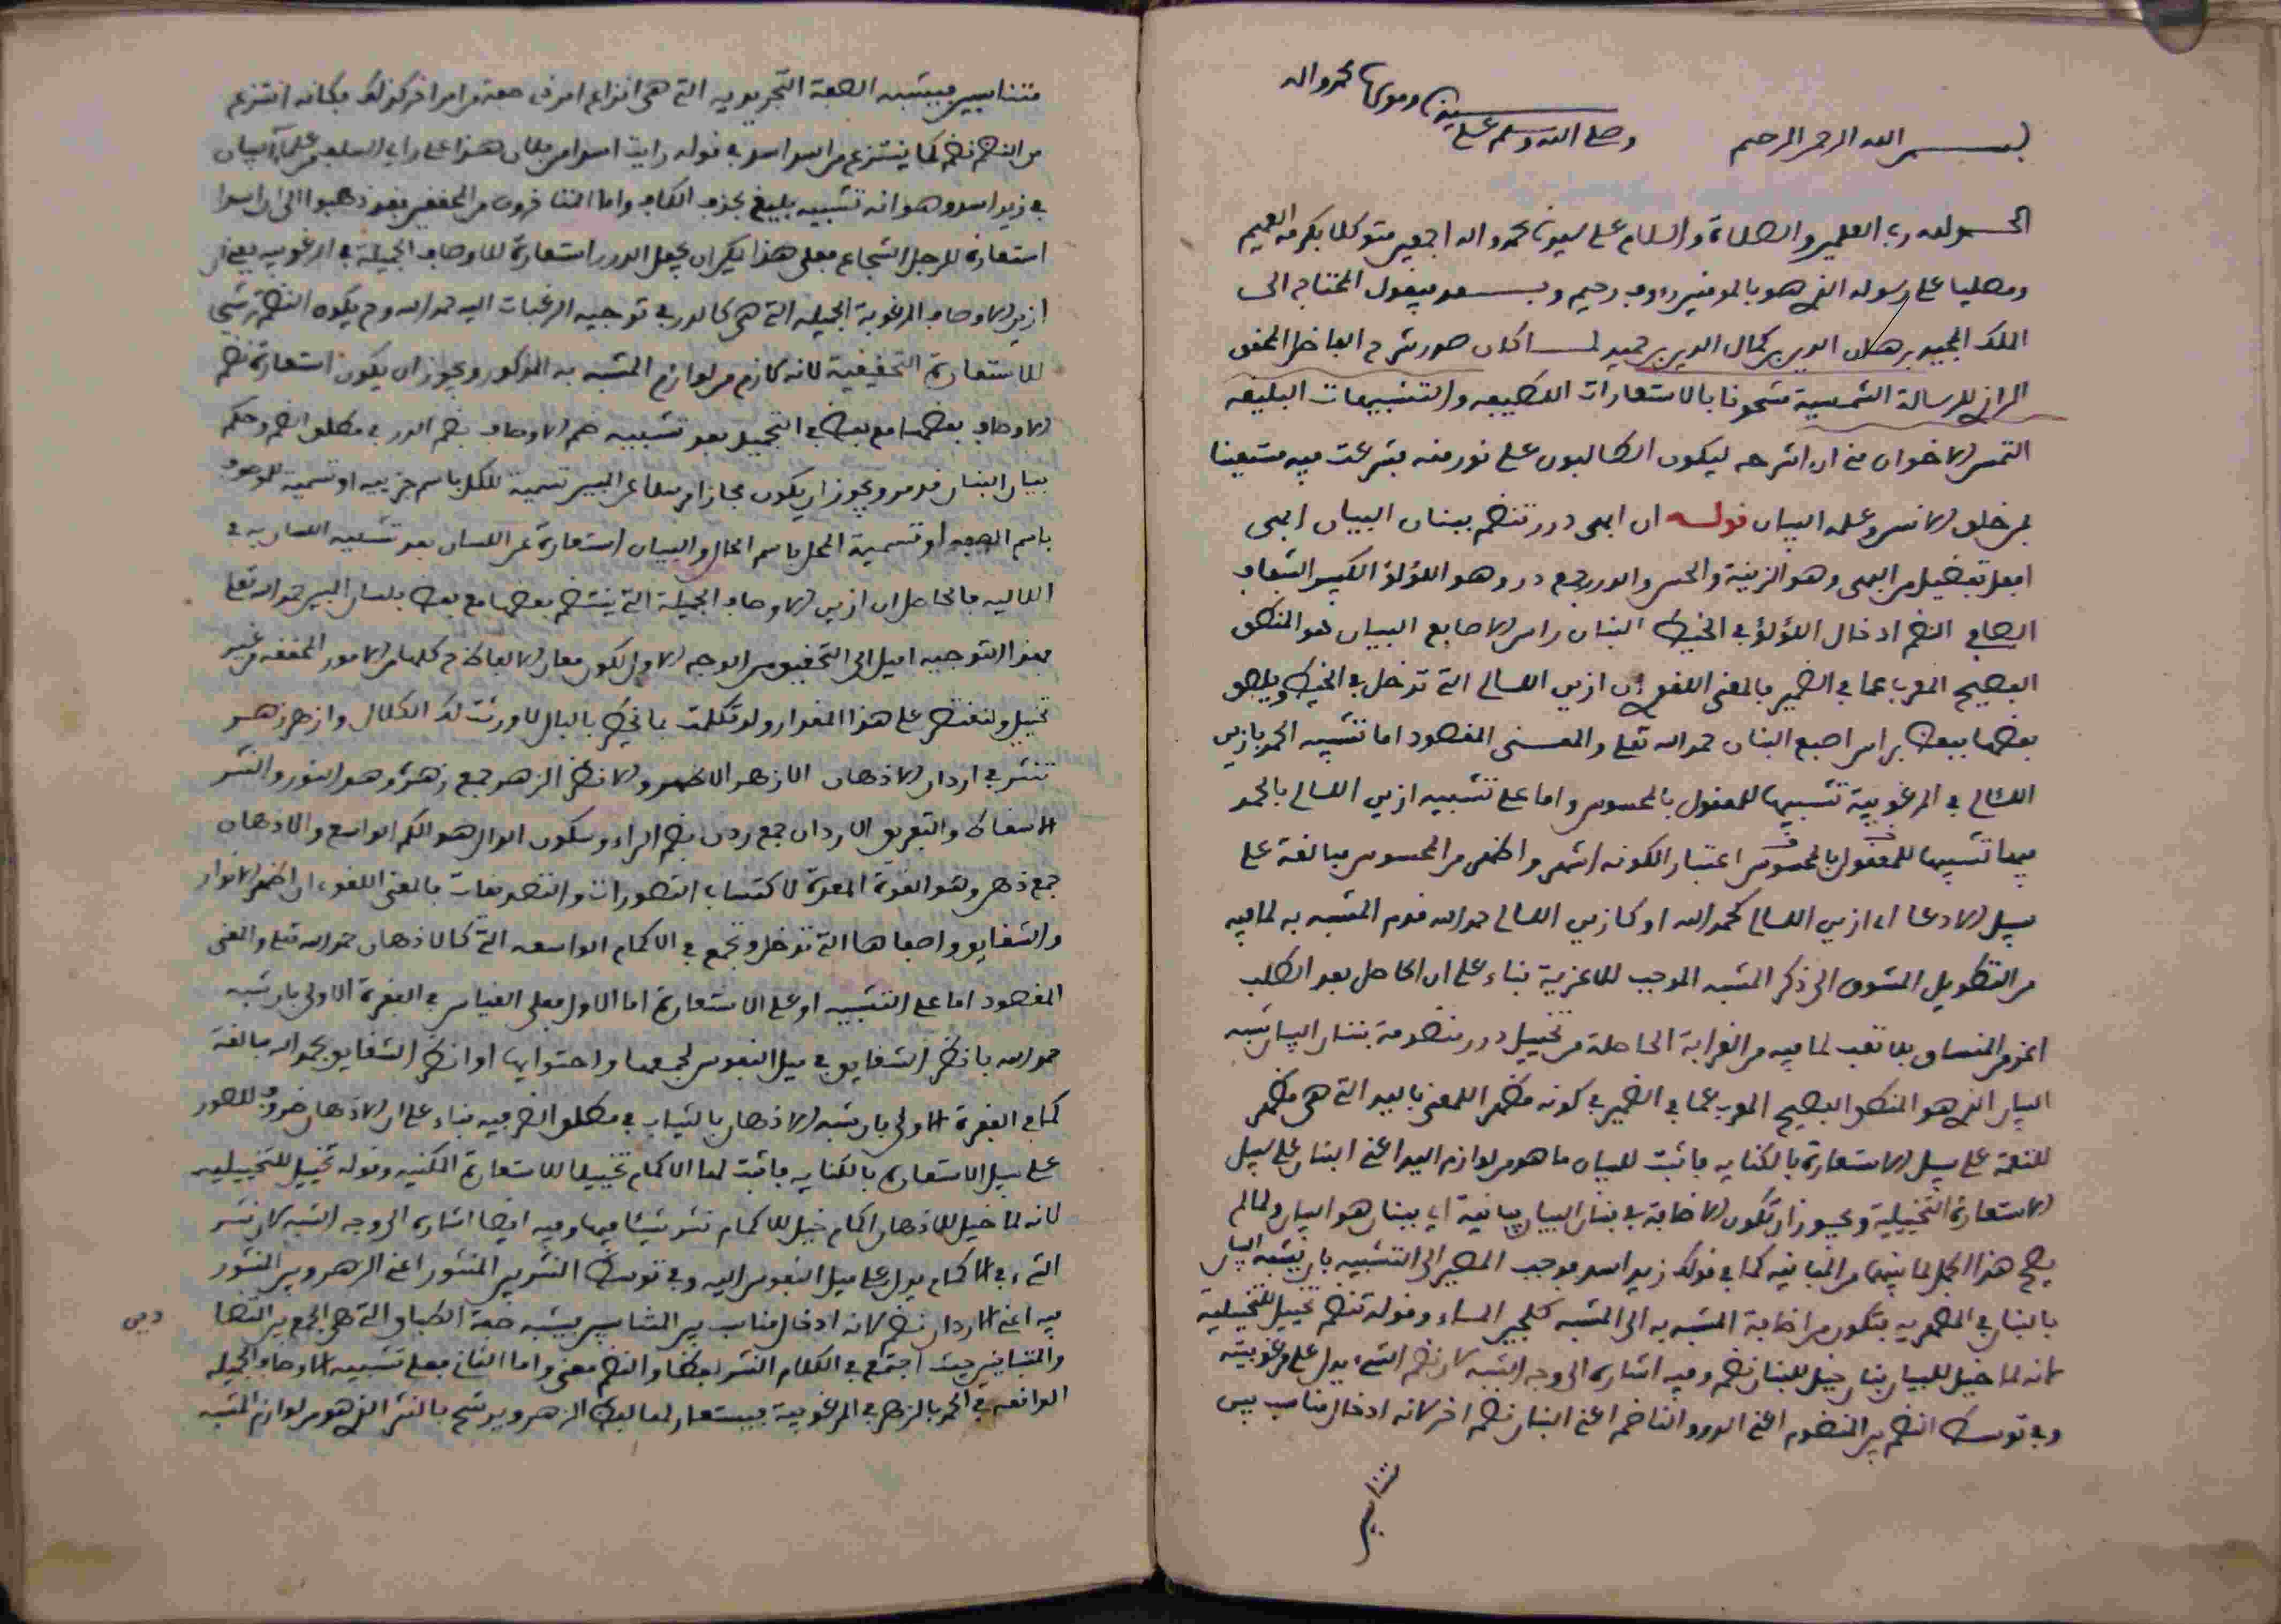 بسم الله الرحمن الرحيم وصلى الله وسلم على سيدنا ومولانا محمد واله
الحمد لله رب العلمين والصلاة والسلام على سيدنا محمد واله اجمعين متوكلا بكرمه العميم
ومصليا على رسوله الذي هو بالمومنين رءوف رحيم وبعد فيقول المحتاج الى
الملك المجيد برهان الدين بن كمال الدين بن حميد لما كان صدر شرح الفاضل المحقق
الرازي للرسالة الشمسية مشحونا بالاستعارات اللطيفه والتشبيهات البليغه
التمس الاخوان مني ان اشرحه ليكون الطالبون على نور منه فشرعت فيه مستعينا
بمن خلق الانس وعلمه البيان قوله ان ابهى درر تنظم ببنان البيان ابهى
افعل تفضيل من البهى وهو الزينة والحسن والدرر جمع در وهو اللؤلؤ الكبير الشفاف
الصافي النظم ادخال اللؤلؤ في الخيط البنان راس الاصابع البيان هو المنطق
الفصيح المعرب عما في الضمير فالمعنى اللغوي ان ازين اللـالي التي تدخل في الخيط ويلصق
بعضها ببعض براس اصبع البنان حمد الله تعلى والمعنى المقصود اما تشبيه الحمد بازين
اللـالي في المرغوبية تشبيها للمعقول بالمحسوس واما على تشبيه ازين اللـالي بالحمد
فيها تشبيها للمعقول بالمحسوس اعتبار الكونه اشهر واظهر من المحسوس مبالغة على
سبيل الادعا اي ازين اللـالي كحمد الله او كازين اللـالي حمد الله قدم المشبه به لما فيه
من التطويل المشوق الى ذكر المشبه الموجب للاعزية بناء على ان الحاصل بعد الطلب
اعز من المنساق بلا تعب لما فيه من الغرابة الحاصلة من تخييل درر منظومة ببنان البيان شبه
البيان الذي هو المنطق الفصيح المعرب عما في الضمير في كونه مظهر اللمعنى باليد التي هي مظهر
للنعمة على سبيل الاستعارة بالكناية فاثبت للبيان ما هو من لوازم اليد اعني البنان على سبيل
الاستعارة التخييلية ويجوز ان تكون الاضافة في بنان البيان بيانية اي ببنان هو البيان ولما لم
يصح هذا الحمل لما بينهما من المباينه كما في قولك زيد اسد فوجب المصير الى التشبيه بان يشبه البيان
بالبنان في المظهريه فتكون من اضافة المشبه به الى المشبه كلجين الماء وقوله تنظم تخييل للتخييلية
لانه لما خيل للبيان بنان خيل للبنان نظم وفيه اشاره الى وجه الشبه لان نظم الشيء يدل على مرغوبيته
وفي توسط النظم بين المنظوم اعني الدرر والناظم اعني البنان نظم اخر لانه ادخال مناسب بين
متناسبين فيشبه الصفة التجريديه التي هي انتزاع امر ذي صفة من امر اخر كذلك فكانه انتزع
من النظم نظم كما ينتزع من الاسد اسد في قوله رايت اسدا من فلان هذا على راي السلف من علماء البيان
في زيد اسد وهو انه تشبيه بليغ بحذف الكاف واما المتاخرون من المحققين فقد ذهبوا الى ان اسدا
استعارة للرجل الشجاع فعلى هذا يمكن ان يجعل الدرر استعارة للاوصاف الجميلة في المرغوبيه يعني ان
ازين الاوصاف المرغوبة الجميله التي هي كالدرر في توجيه الرغبات اليه حمد الله وح يكون النظم ترشيح
للاستعارة التحقيقية لانه لازم من لوازم المشبه به المذكور ويجوز ان يكون استعارة لضم
الاوصاف بعضها مع بعض في التجميل بعد تشبيه ضم الاوصاف بضم الدرر في مطلق الضم وحكم
بيان البنان قد مر ويجوز ان يكون مجازا مرسلا عن المبين تسمية للكل باسم جزييه او تسمية للموصوف
باسم الصفه او تسمية المحل باسم الحال والبيان استعارة عن اللسان بعد تشبيه اللسان به في
فالحاصل ان ازين الاوصاف الجميلة التي ينتظم بعضها مع بعض بلسان المبين حمد الله تعلى
فهذا التوجيه اميل الى التحقيق من الوجه الاول لكون معان الالفاظ ح كلها من الامور المحققه من غير
تخييل ولنقتصر على هذا المقدار ولو تكلمت ما يخطر بالبال لاورثت لك الكلال وازهر زهر
تنثر في اردان الاذهان الازهر الاظهر والانضر الزهر جمع زهرة وهو النور والنثر
الاسقاط والتفريق الاردان جمع ردن بضم الراء وسكون الدال هو الكم الواسع والاذهان
جمع ذهن وهو القوة المعدة لاكتساب التصورات والتصديقات فالمعنى اللغوي ان اظهر الانوار
والشقايق واصفاها التي تدخل وتجمع في الاكمام الواسعه التي كالاذهان حمد الله تعلى والمعنى
المقصود اما على التشبيه او على الاستعارة اما الاول فعلى القياس في الفقرة الاولى بان شبه
حمد الله بانضر الشقايق في ميل النفوس لجمعها واحتوايها او انضر الشقايق بحمد الله مبالغة
كما في الفقرة الاولى بان شبه الاذهان بالثياب في مطلق الظرفيه بناء على ان الاذهان ظروف للصور
على سبيل الاستعارة بالكنايه فاثبت لها الاكمام تخييلا للاستعارة المكنيه وقوله تخييل للتخييليه
لانه لما خيل للاذهان اكمام خيل للاكمام نثر شيئا فيها وفيه ايضا اشاره الى وجه الشبه لان نثر
الشيء في الاكمام يدل على ميل النفوس اليه وفي توسط النثر بين المنثور اعني الزهر وبين المنثور
فيه اعني الاردان نظم لانه ادخال مناسب بين المتناسبين فيشبه صفة الطباق التي هي الجمع بين المتضا
دين
والمتباينين حيث اجتمع في الكلام النثر لفظا والنظم معنى واما الثاني فعلى تشبيه الاوصاف الجميله
الواقعه في الحمد بالزهر في المرغوبية فيستعار لها لفظ الزهر ويرشح بالنثر الذي هو من لوازم المشبه
متناسبين